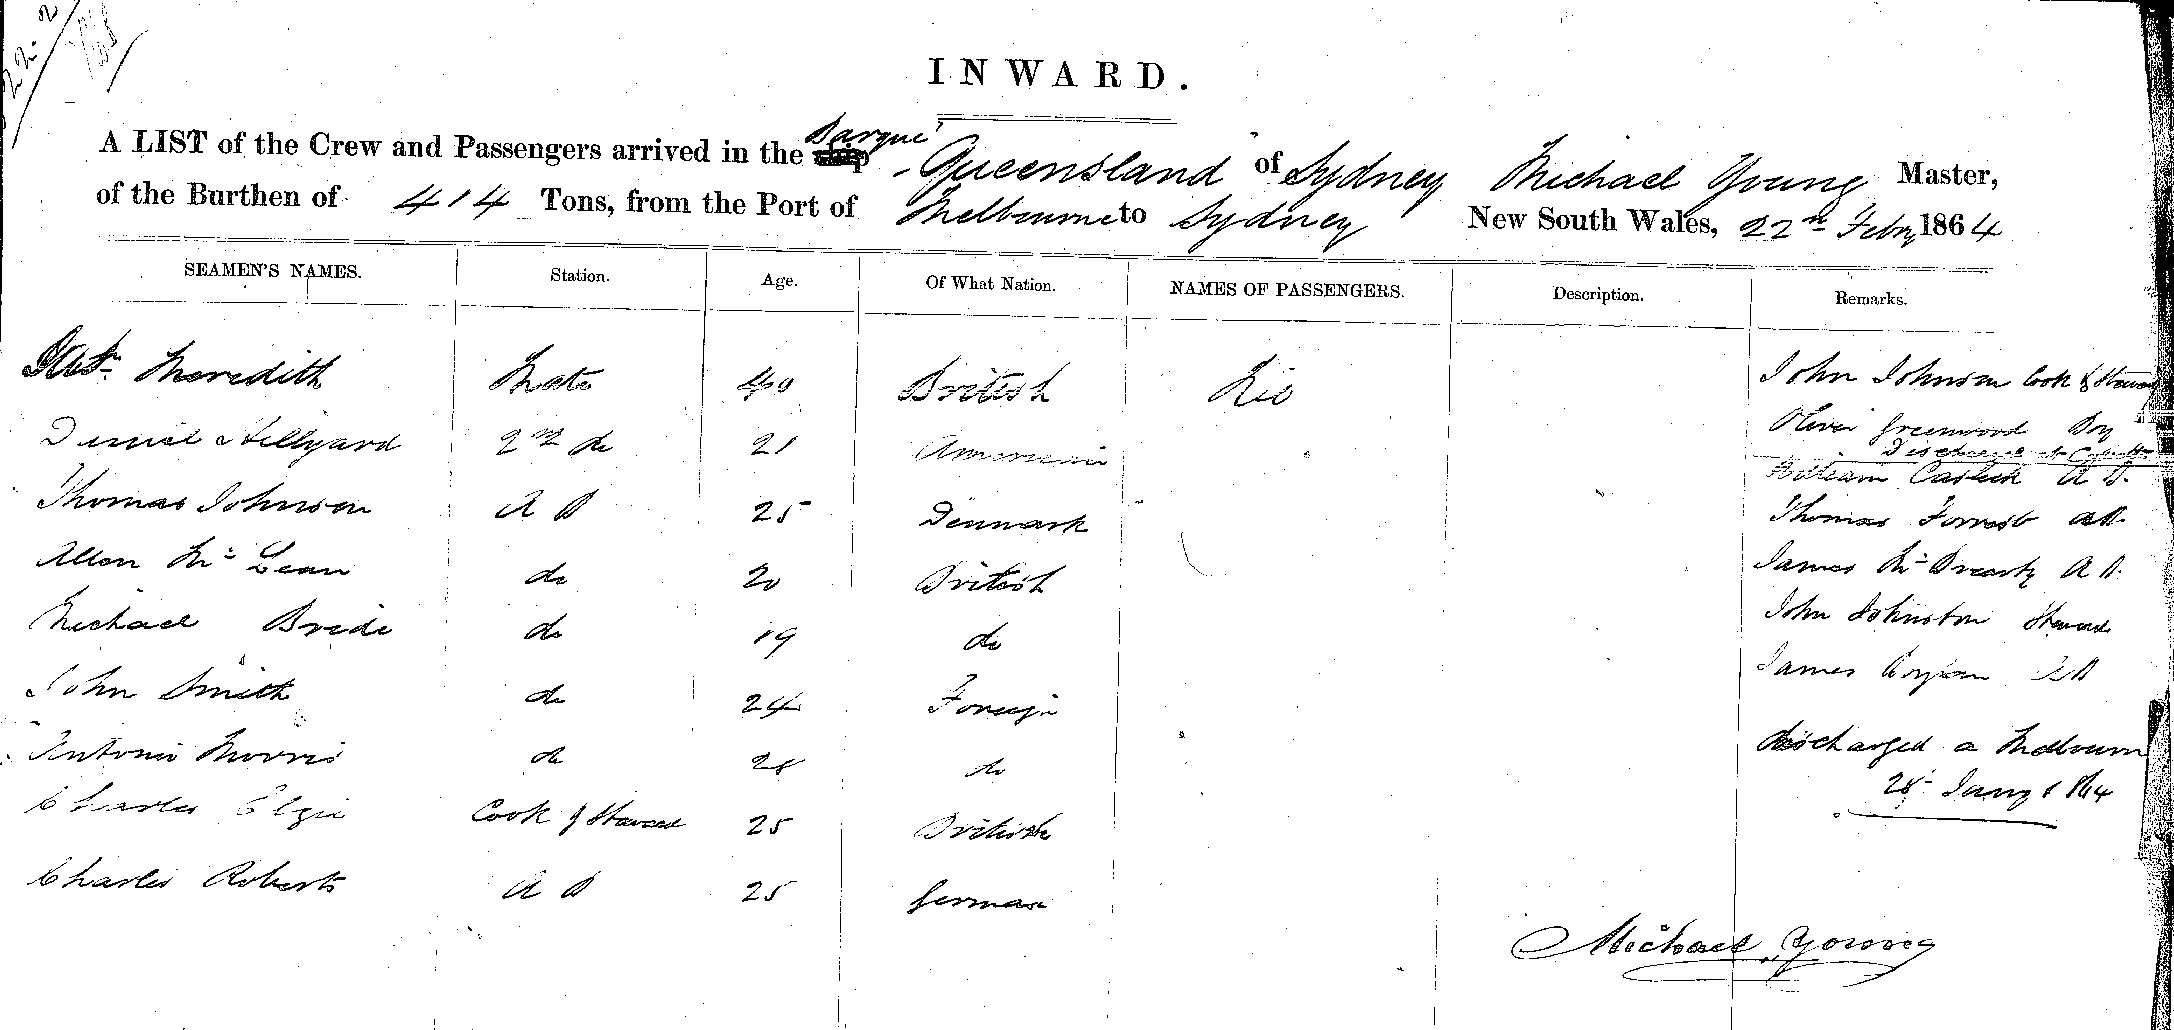 22. 2
INWARD.
A LIST of the Crew and Passengers arrived in the Barque Queensland of Sydney Michael Young Master,
of the Burthen of 414 Tons, from the Port of Melbourne to Sydney New South Wales, 22nd Febry 1864
SEAMEN'S NAMES. Station. Age. Of What Nation. NAMES OF PASSENGERS. Description. Remarks.
Meredith Mate 40 British John Johnson Cook & Steward
Hillyard 2nd do 21 American Oliver Greenwood Boy
Discharged at
Thomas Johnson A B 25 Denmark William A B.
Thomas Forrest AB.
Allen Mc Lean do 20 British James A B.
Michael Bride do 19 do John Johnston Steward
John Smith do 24 Foreign James AB
Antonio Morris do 28 do discharged a Melbourn
28 Jany 1864
Charles Elzie Cook & Steward 25 British
Charles Roberts A B 25 German
Michael Young